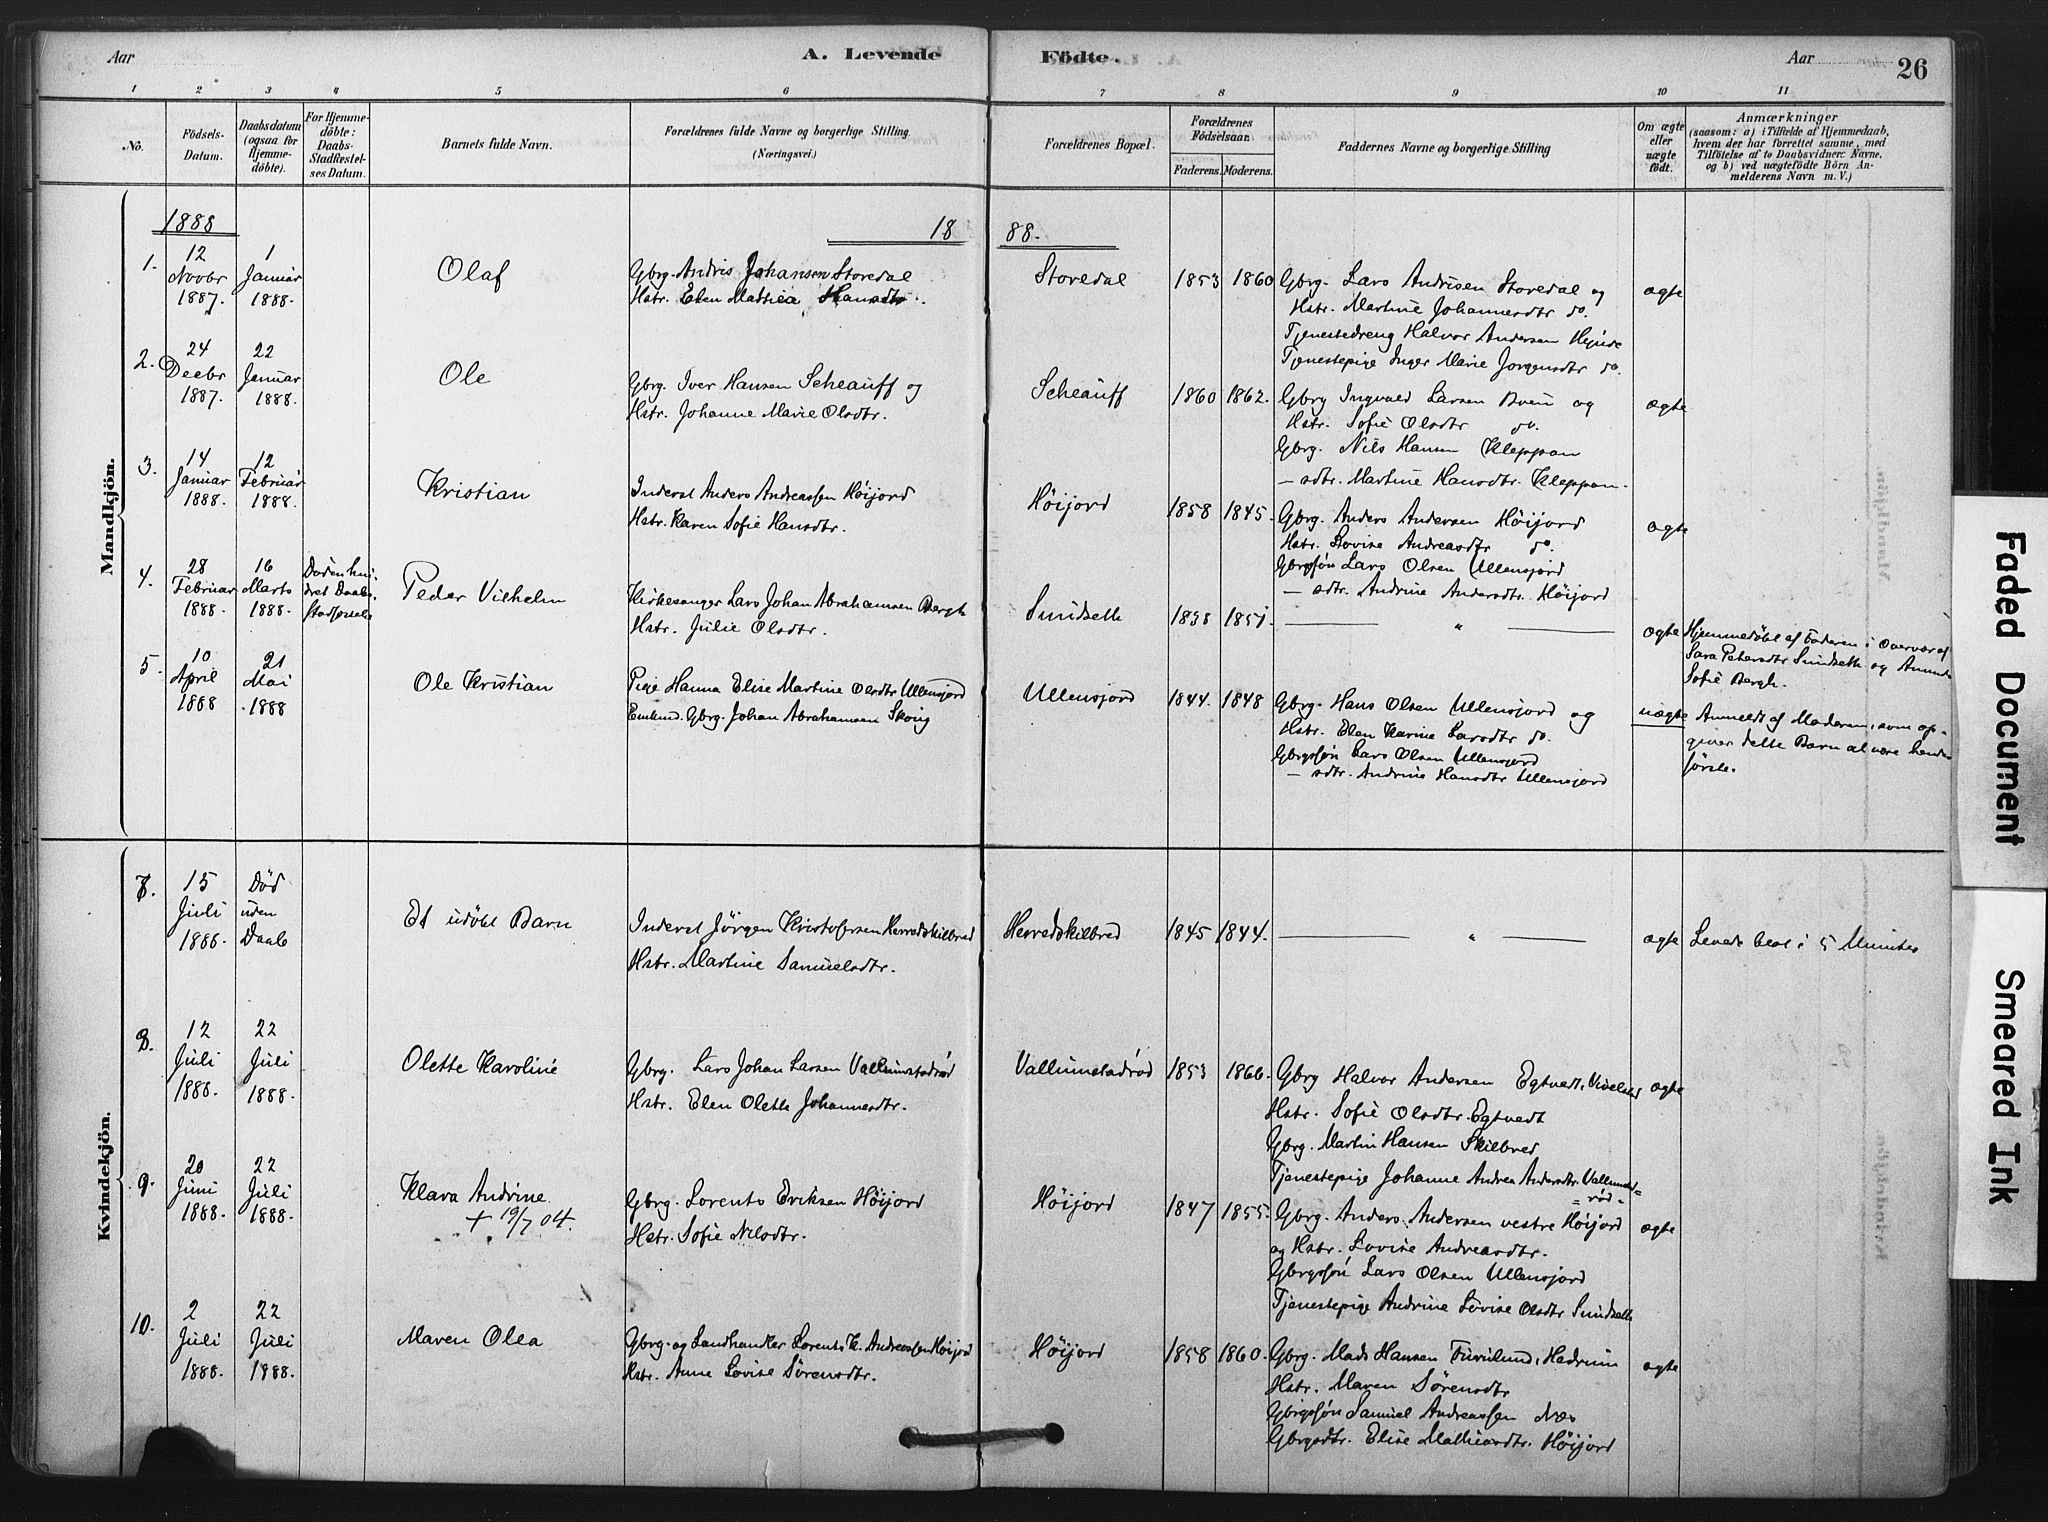 Aar
A. Levende
Födte.
Aar
26
1 2 3 4 5 6 7 8 9 10 11
No.
Födsels-Datum.
Daabsdatum (ogsaa for Hjemmedöbte).
For Hjemmedöbte: Daabs-Stadfæstelses Datum.
Barnets fulde Navn.
Forældrenes fulde Navne og borgerlige Stilling.
(Næringsvei.)
Forældrenes Bopæl.
Forældrenes Födselsaar.
Faderens. Moderens.
Faddernes Navne og borgerlige Stilling
Om ægte eller uægte födt.
Anmærkninger
(saasom: a) i Tilfælde af Hjemmedaab,
hvem der har forrettet samme, med
Tilföielse af to Daabsvidner: Navne,
og b) ved uægtefödte Börn An-
melderens Navn m. V.)
Mandkjön.
1888
18
88.
1.
12 Novbr 1887.
1 Januar 1888.
Olaf
Gbrg. Andris Johansen Storedal
Hstr. Elen Mathea Hansdtr.
Storedal
1853 1860
Gbrg. Lars Andrisen Storedal og
Hstr. Martine Johannesdtr do.
Tjenestedreng Halvor Andersen
Tjenestepige Inger Marie Jorgensdtr do.
ægte
2.
24 Decbr 1887.
22 Januar 1888.
Ole
Gbrg. Iver Hansen Scheauff og
Hstr. Johanne Marie Olsdtr.
Scheauff
1860 1862.
Gbrg Ingvald Larsen og
Hstr. Sofie Olsdtr do.
Gbrg. Nils Hansen Kleppan
— sdtr. Martine Hansdtr. Kleppan.
ægte
3.
14 Januar 1888.
12 Februar 1888.
Kristian
Inderst Anders Andreassen Höijord
Hstr. Karen Sofie Hansdtr.
Höijord
1858 1845.
Gbrg. Anders Andersen Höijord
Hstr. Lovise Andreasdtr do.
Gbrgssön Lars Olsen Ullensjord
— sdtr. Andrine Andersdtr. Höijord
ægte
4.
28 Februar 1888.
16 Marts 1888.
Peder Vilhelm
Kirkesanger Lars Johan Abrahamsen Bergh
Hstr. Julie Olsdtr.
Sundseth
1838 1851.
— " —
ægte
Hjemmedöbt af Faderen i Overvær af
Sara Petersdtr Sundseth og
Sofie Bergh.
5.
10 April 1888
21 Mai 1888
Ole Kristian
Pige Hanna Elise Martine Olsdtr Ullensjord
Gbrg. Johan Abrahamsen Skoug
Ullensjord
1844. 1848
Gbrg. Hans Olsen Ullensjord og
Hstr. Elen Karine Larsdtr do.
Gbrgssön Lars Olsen Ullensjord
— sdtr. Andrine Hansdtr Ullensjord
uægte
Anmeldt af Moderen, som op-
giver dette Barn at være hendes
förste.
Kvindekjön.
7.
15 Juli 1888.
Död uden Daab
Et udöbt Barn
Inderst Jörgen Kristofersen Herredskilbred
Hstr. Martine Samuelsdtr.
Herredskilbred
1845 1844.
— " —
ægte
Levede blot i 5 Minutes
8.
12 Juli 1888.
22 Juli 1888.
Olette Karoline
Gbrg. Lars Johan Larsen Vallumstadröd
Hstr. Elen Oleth Johannesdtr.
Vallumstadröd
1853 1866.
Gbrg Halvor Andersen Egtvedt,
Hstr. Sofie Olsdtr. Egtvedt
Gbrg. Martin Hansen Skilbred
Tjenestepige Johanne Andrea Andersdtr. Vallumstad-
röd
ægte
9.
20 Juni 1888.
22 Juli 1888.
Klara Andrine
+ 19/7 04.
Gbrg. Lorents Eriksen Höijord
Hstr. Sofie Nilsdtr.
Höijord
1847 1855.
Gbrg. Anders Andersen vestre Höijord
og Hstr. Lovise Andreasdtr.
Gbrgssön Lars Olsen Ullensjord
Tjenestepige Andrine Lovise Olsdtr Sundseth
ægte
10.
2 Juli 1888.
22 Juli 1888.
Maren Olea
Gbrg. og Landhandler Lorents K. Andreassen Höijord
Hstr. Anne Lovise Sörensdtr.
Höijord
1858 1860.
Gbrg. Mads Hansen Furulund, Hedrum
Hstr. Maren Sörensdtr
Gbrgssön Samuel Andreassen Næs
Gbrgsdtr. Elise Mathiasdtr. Höijord
ægte
Faded Document
Smeared Ink